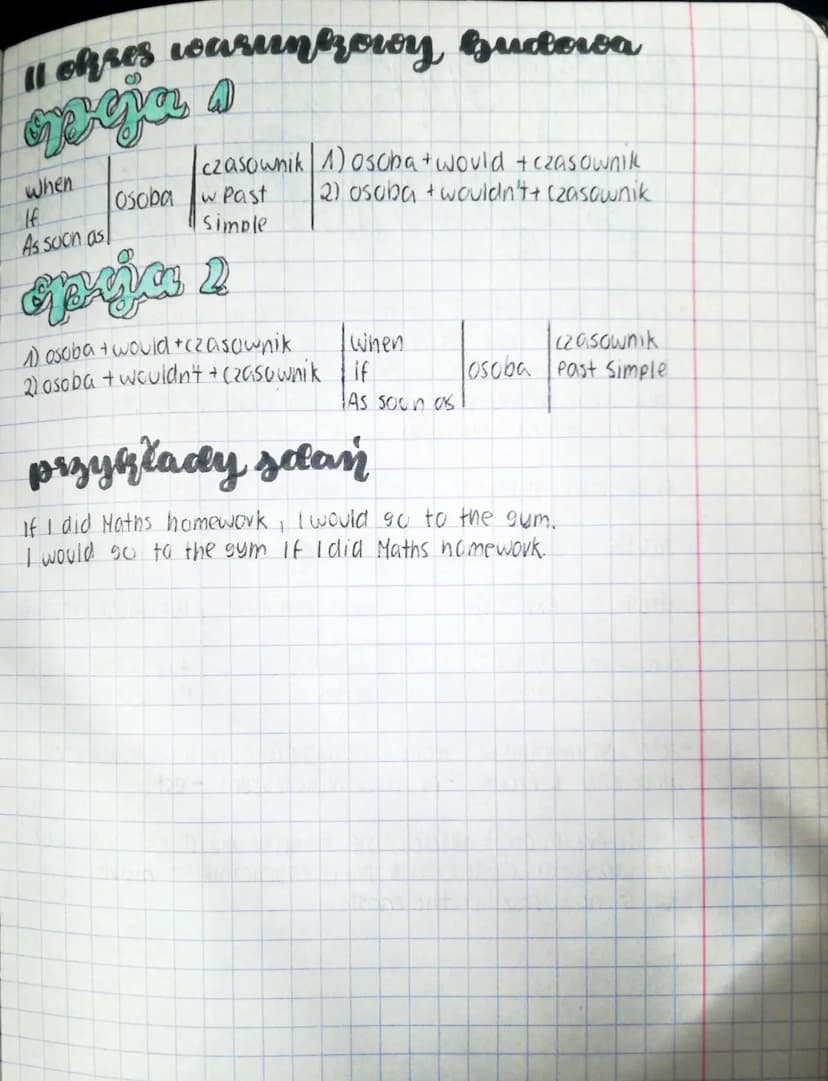 II okres warunkowy budowa
opcja 1
When
If
As soon as
osoba
czasownik
w Past
Simple
1) osoba + would + czasownik
2) osoba + wouldn't + czasownik
opcja 2
1) osoba + would + czasownik
2) osoba + wouldn't + czasownik
When
if
As soon as
osoba
czasownik
Past Simple
przykłady zdań
If I did Maths homework, I would go to the gym.
I would go to the gym if I did Maths homework.